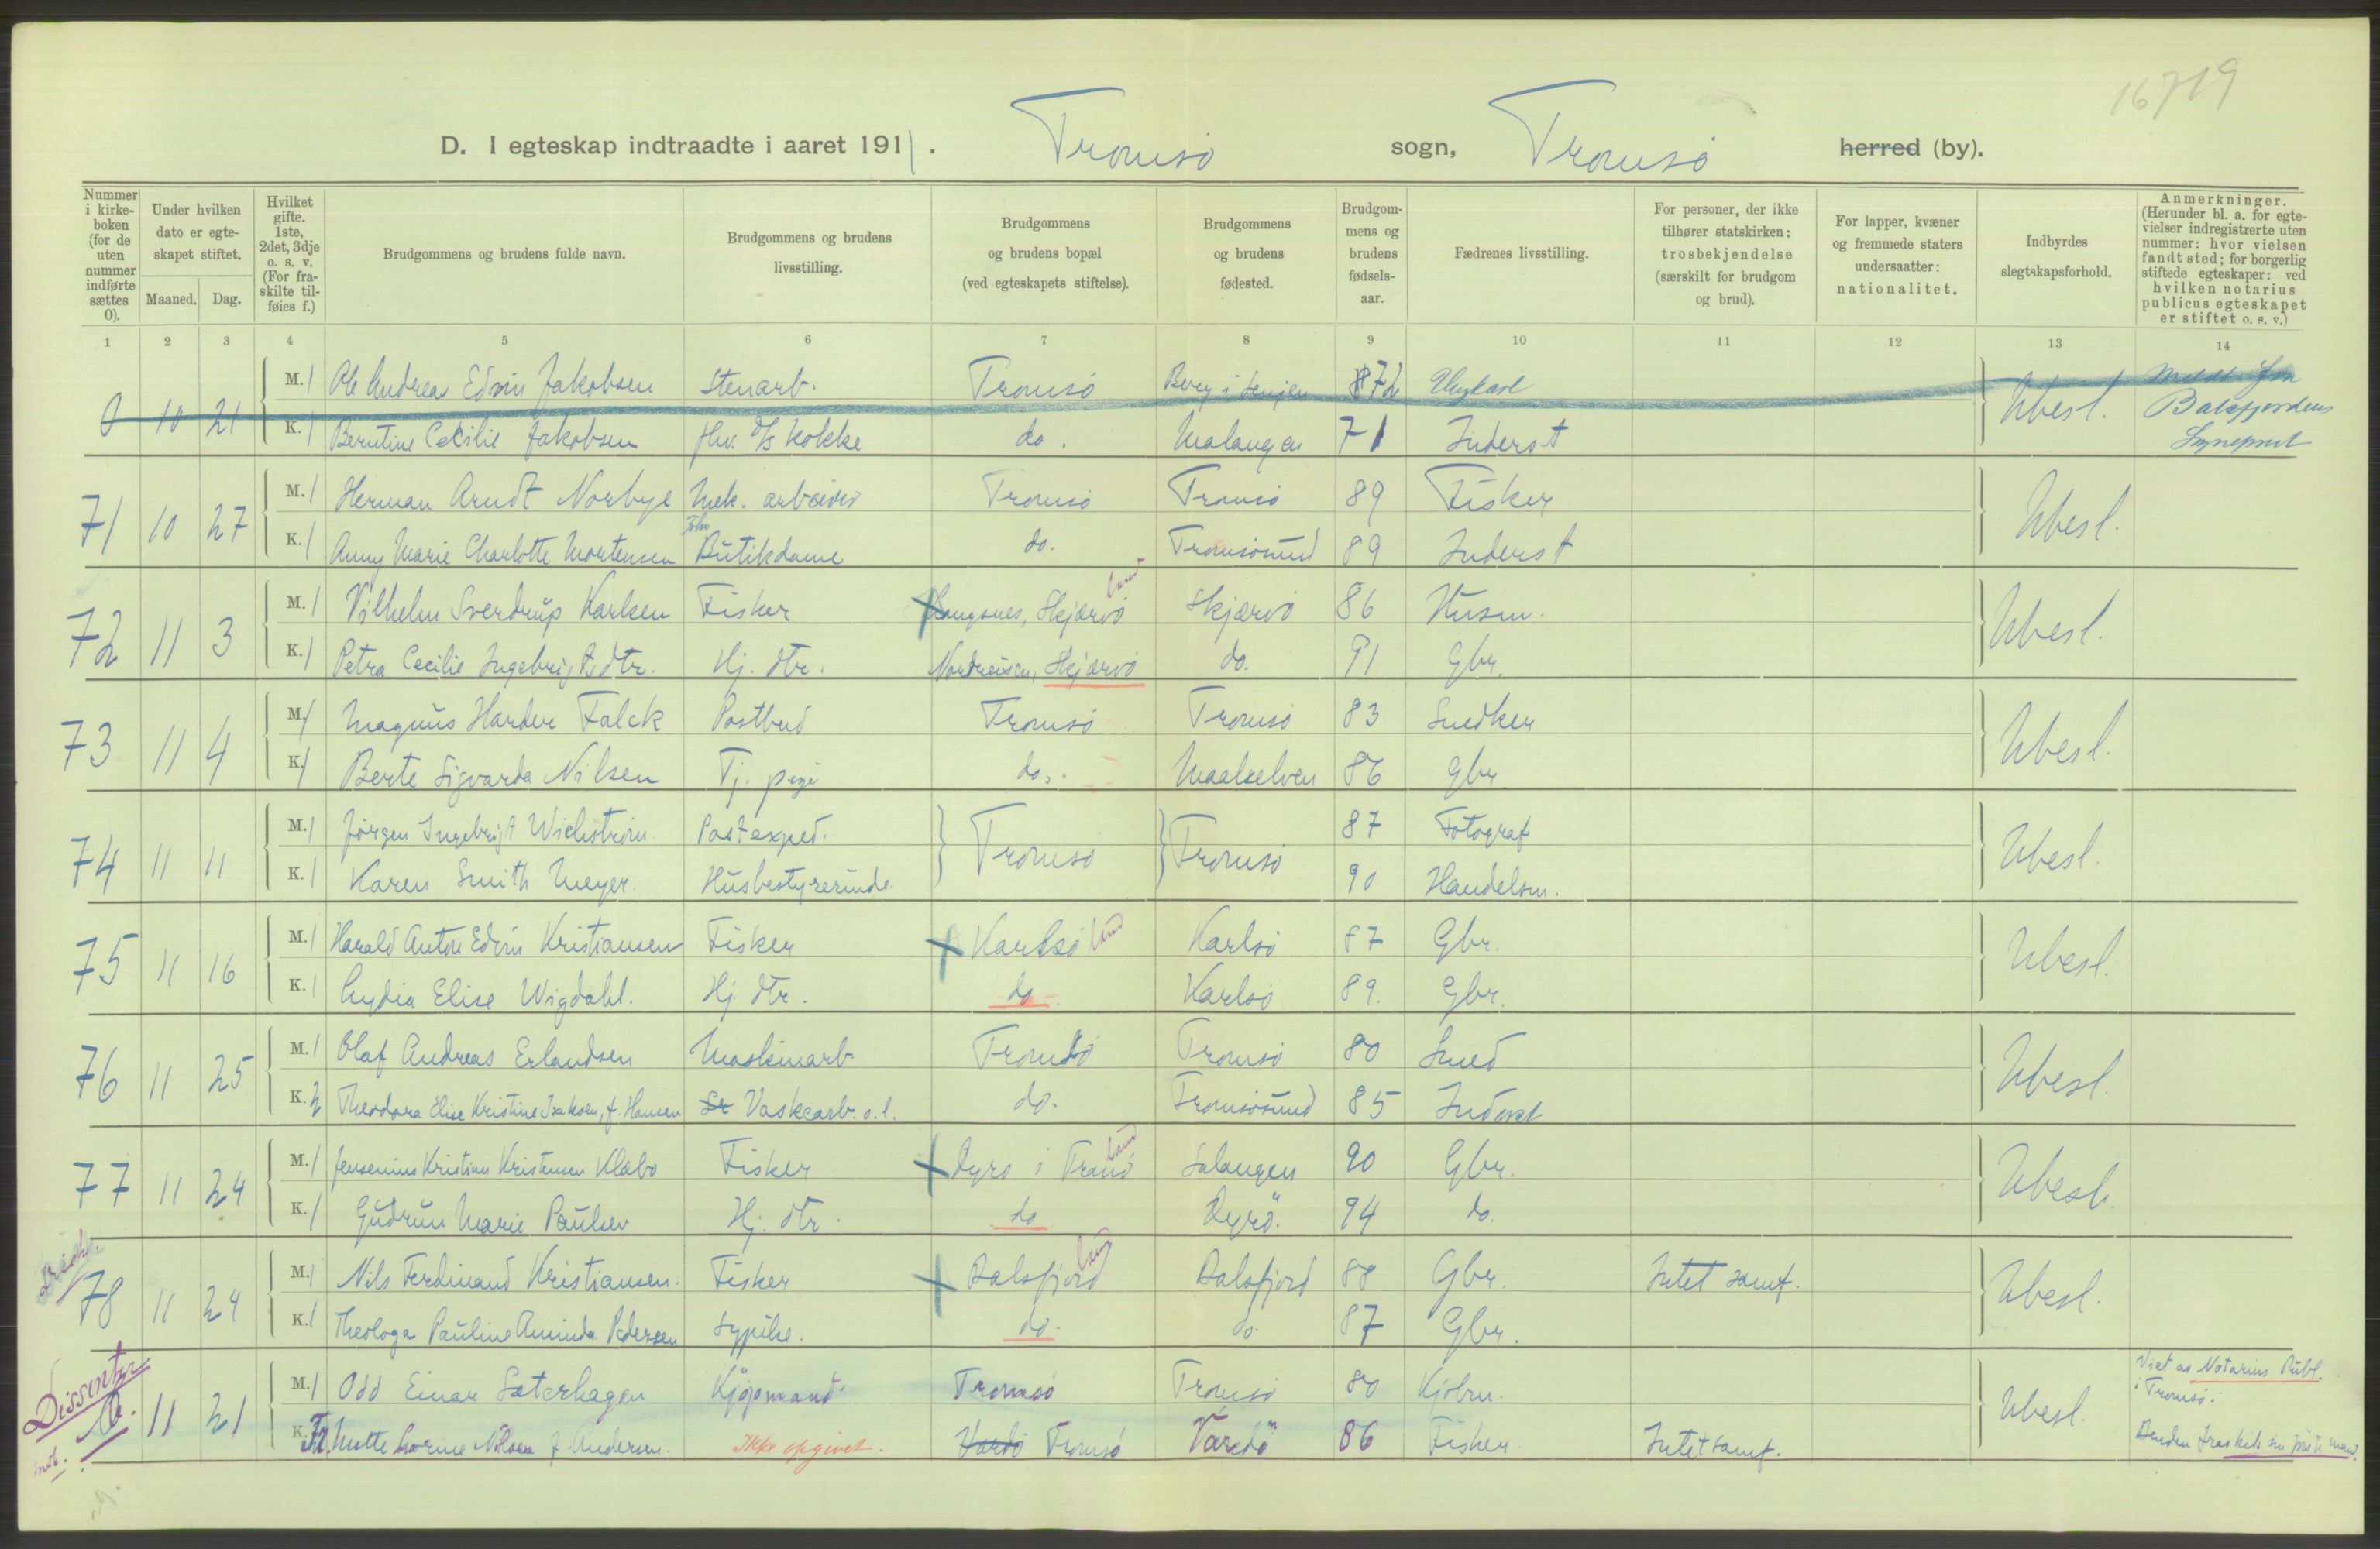 16719
D. I egteskap indtraadte i aaret 1911. Tromsö sogn, Tromsö herred (by).
Nummer i kirke-boken (for de uten nummer indførte sættes 0).
Under hvilken dato er egte-skapet stiftet.
Maaned. Dag.
Hvilket gifte. 1ste, 2det, 3dje o. s. v. (For fra-skilte til-føies f.)
Brudgommens og brudens fulde navn.
Brudgommens og brudens livsstilling.
Brudgommens og brudens bopæl (ved egteskapets stiftelse).
Brudgommens og brudens fødested.
Brudgom-mens og brudens fødsels-aar.
Fædrenes livsstilling.
For personer, der ikke tilhører statskirken: trosbekjendelse (særskilt for brudgom og brud).
For lapper, kvæner og fremmede staters undersaatter: nationalitet.
Indbyrdes slegtskapsforhold.
Anmerkninger. (Herunder bl. a. for egte-vielser indregistrerte uten nummer: hvor vielsen fandt sted; for borgerlig stiftede egteskaper: ved hvilken notarius publicus egteskapet er stiftet o. s. v.)
1 2 3 4 5 6 7 8 9 10 11 12 13 14
0 10 21 M. 1 Ole Andreas Edvin Jakobsen Stenarb. Tromsö Berg i Senjen 872 Ungkarl Ubesl.
K. 1 Berntine Cecilie Jakobsen fhv. D/S kokke do. Malangen 71 Inderst
Balsfjordens
71 10 27 M. 1 Herman Arndt Norbye Mek. arbeider Tromsö Tromsö 89 Fisker Ubesl.
K. 1 Anny Marie Charlotte Mortensen Butikdame do. Tromsösund 89 Inderst
72 11 3 M. 1 Vilhelm Sverdrup Karlsen Fisker Laugsnes, Skjærvö land Skjærvö 86 Husm. Ubesl.
K. 1 Petra Cecilie Ingebrigtsdtr. Hj. dtr. Nordreisen, Skjærvö do. 91 Gbr.
73 11 4 M. 1 Magnus Harder Falck Postbud Tromsö Tromsö 83 Snedker Ubesl.
K. 1 Berte Sigvarda Nilsen Tj. pige do. Maalselven 86 Gbr
74 11 11 M. 1 Jörgen Ingebrigt Wichström Postexped. Tromsö Tromsö 87 Fotograf Ubesl.
K. 1 Karen Smith Meyer. Husbestyrerinde. 90 Handelsm.
75 11 16 M. 1 Harald Anton Edvin Kristiansen Fisker Karlsö land Karlsö 87 Gbr. Ubesl.
K. 1 Lydia Elise Wigdahl. Hj. dtr. do. Karlsö 89. Gbr.
76 11 25 M. 1 Olaf Andreas Erlandsen Maskinarb. Tromsö Tromsö 80 Smed Ubesl.
K. 2 Theodora Elise Kristine Isaksen, f. Hansen Vaskearb. o. l. do. Tromsösund 85 Inderst
77 11 24 M. 1 Jensenius Kristian Kristensen Klæbo Fisker Dyrö i Tranö land Salangen 90 Gbr. Ubesl.
K. 1 Gudrun Marie Paulsen Hj. dtr. do Dyrö. 94 do.
78 11 24 M. 1 Nils Ferdinand Kristiansen. Fisker Balsfjord land Balsfjord 88 Gbr. Intet samf. Ubesl.
K. 1 Theologa Pauline Aminda Pedersen Sypike. do. do. 87 Gbr.
Dissenter
0. 11 21 M. 1 Odd Einar Sæterhagen Kjöpmand Tromsö Tromsö 80 Kjöbm. Ubesl. Viet av Notarius Publ. i Tromsö.
K. Fr. Mette Lorine Nilsen f. Andersen. Ikke opgivet. Vardö Tromsö Vardö 86 Fisker. Intet samf. Bruden fraskilt sin förste mand.